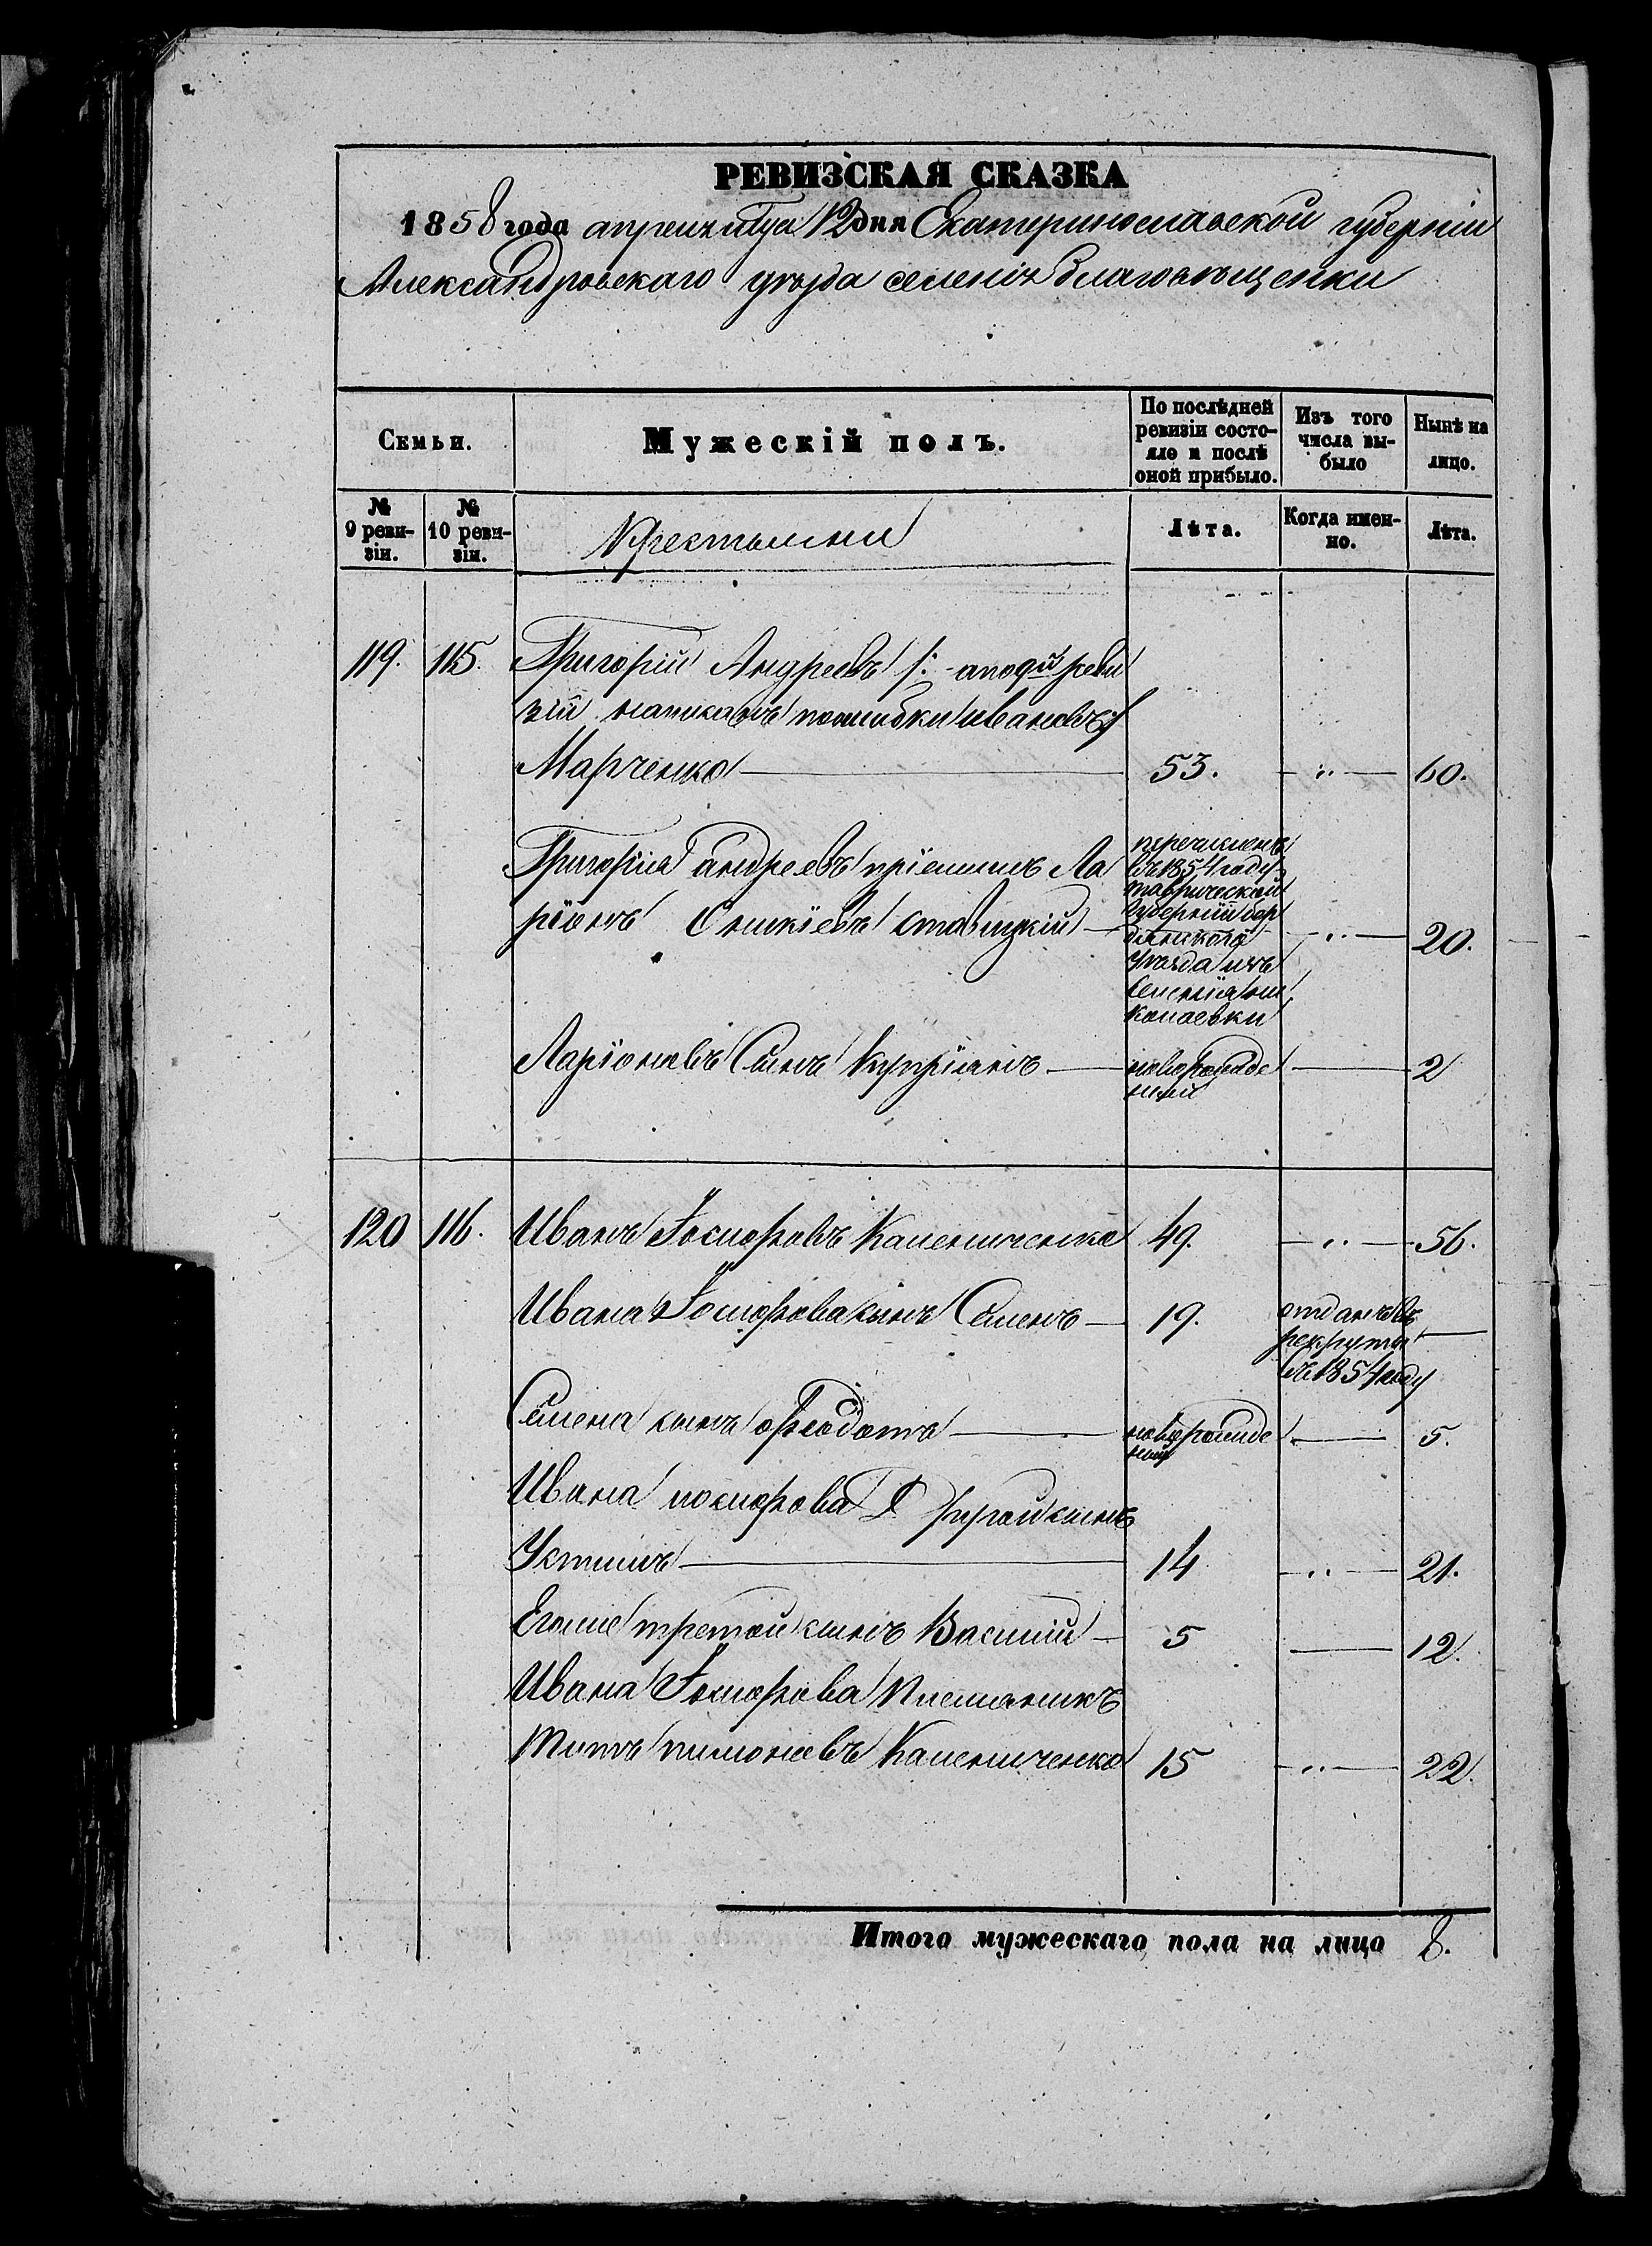 РЕВИЗСКАЯ СКАЗКА
1858 года апреля мца 12 дня Екатеринославской губерніи
Александровскаго уѣзда селенія благовѣщенки
Семьи.
Мужескій полъ.
По послѣдней ревизіи состояло и послѣ оной прибыло.
Изъ того числа выбыло
Нынѣ на лицо.
№ 9 ревизіи.
№ 10 ревизіи.
Крестьяни
Лѣта.
Когда именно.
Лѣта.
119. 115. Григорій Андреевъ /: апо 9й реви
зіи написанъ поошибки ивановъ:/
Марченко 53. " 60.
Григорія андреевъ пріемишъ Ла
ріонъ ставицкій " 20.
перечисленъ
въ 1854 году
таврической
Губерніи бер
дянского
уѣзда изъ
селенія
Ларіоновъ Сынъ Купріянъ новорожде
ний 2
120 116. Иванъ Госифовъ Каменниченко 49. " 56.
Ивана Госифова сынъ Семенъ 19. отданъ въ
рекруты
въ 1854 году
Семена сынъ феодотъ новорожде
ний 5.
Ивана иосифова Другой сынъ
Устинъ 14 " 21.
Егоже третой сынъ Василій 5 12.
Ивана Госифова Племянникъ
Титъ Каменниченко 15 " 22.
Итого мужескаго пола на лицо 8.